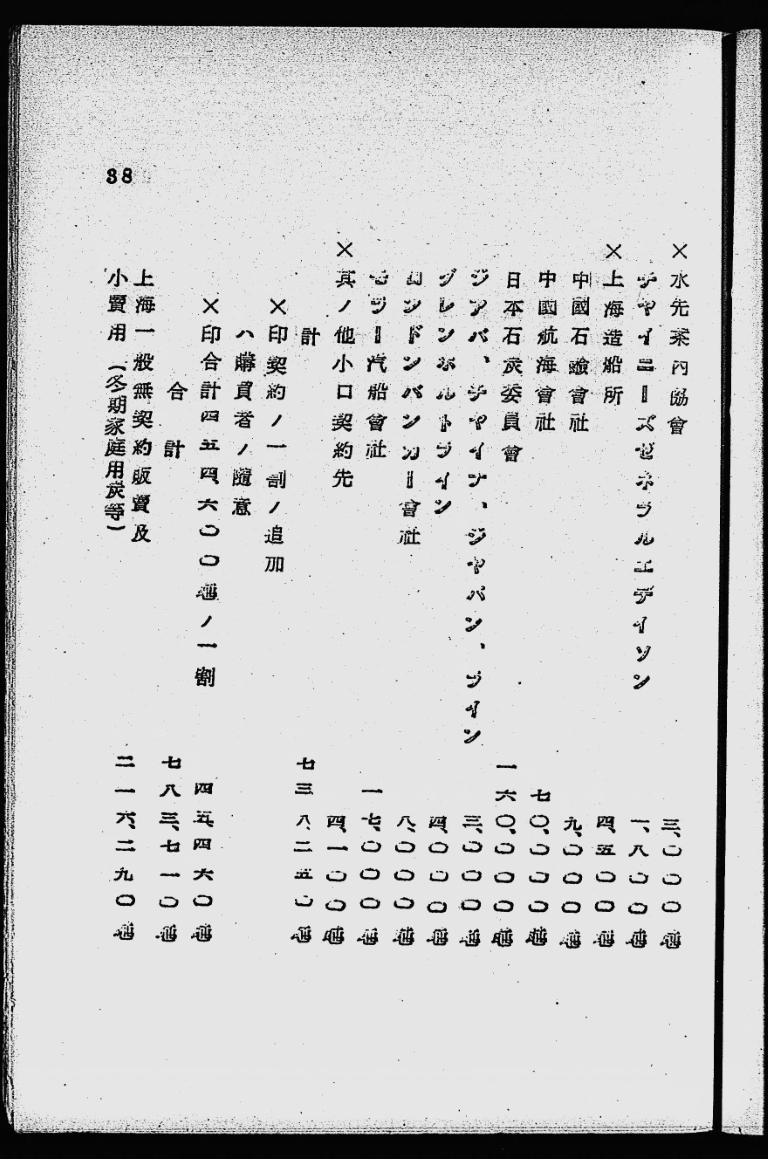 ×水先案內協會 三、〇〇〇瓲
チヤイニーズゼネラルエデイソン 一、八〇〇瓲
×上海造船所 四、五〇〇瓲
中國石鹼會社 九、〇〇〇瓲
中國航海會社 七〇、〇〇〇瓲
日本石炭委員會 一六〇、〇〇〇瓲
ジアバ、チヤイナ、ジヤパン、ライン 三、〇〇〇瓲
グレンホルトライン 四、〇〇〇瓲
ロンドンバンカー會社 八、〇〇〇瓲
モラー汽船會社 一七、〇〇〇瓲
×其ノ他小口契約先 四、一〇〇瓲
計 七三八、二五〇瓲
×印契約ノ一割ノ追加
ハ購買者ノ隨意
×印合計四五四、六〇〇瓲ノ一割 四五、四六〇瓲
合計 七八三、七一〇瓲
上海一般無契約販賣及
小賣用(冬期家庭用炭等) 二一六、二九〇瓲
38